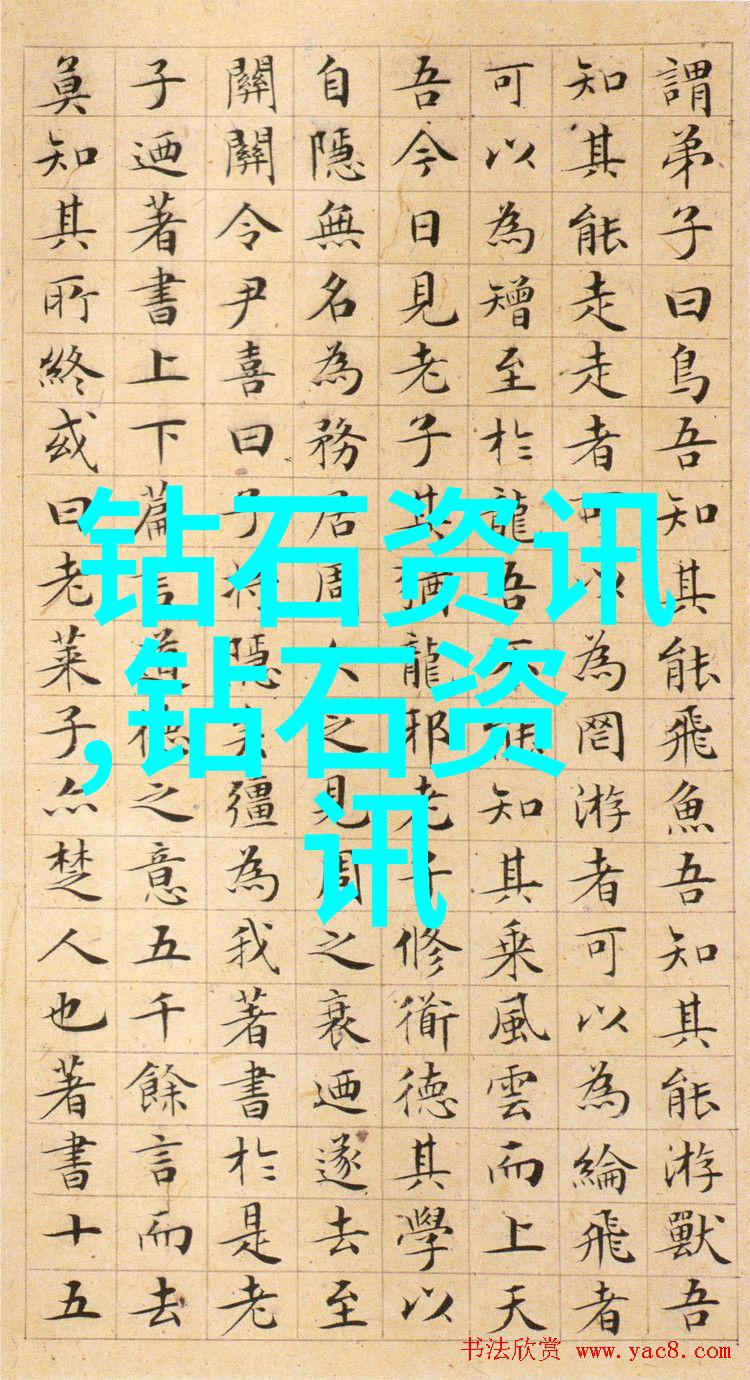 謂弟子曰鳥吾知其能飛魚吾知其能游獸吾
知其能走走者可以為罔游者可以為綸飛者
可以為矰至於龍吾不能知其乘風雲而上天
吾今日見老子其猶龍邪老子修衜德其學以
自隱無名為務居周久之見周之衰迺遂去至
關關令尹喜曰子將隱矣彊為我著書於是老
子迺著書上下篇言道德之意五千餘言而去
莫知其所終或曰老萊子亦楚人也著書十五
钻石资讯
,钻石资
讯
书法欣赏 www.yac8.com